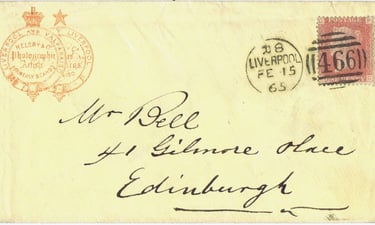 LIVERPOOL
HELSBY & Co
Photographic
Artists
RB
LIVERPOOL
FE 15
65
466
Mr Bell
41 Gilmore Place
Edinburgh